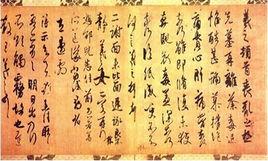 羲之頓首喪亂之極
先墓再離荼毒追
惟酷甚號慕摧絕
痛貫心肝痛當奈何
奈何雖即脩復未獲
奔馳哀毒益深奈何
奈何臨紙感哽不知
何言羲之頓首頓首
二謝面未比面遲詠良
不靜羲之女愛再拜
想邵兒悉佳前患者
善所送議當試尋省
左邊劇
得示知足下猶未佳耿耿
吾亦劣劣明日出乃行
不欲觸霧故也遲散
王羲之頓首